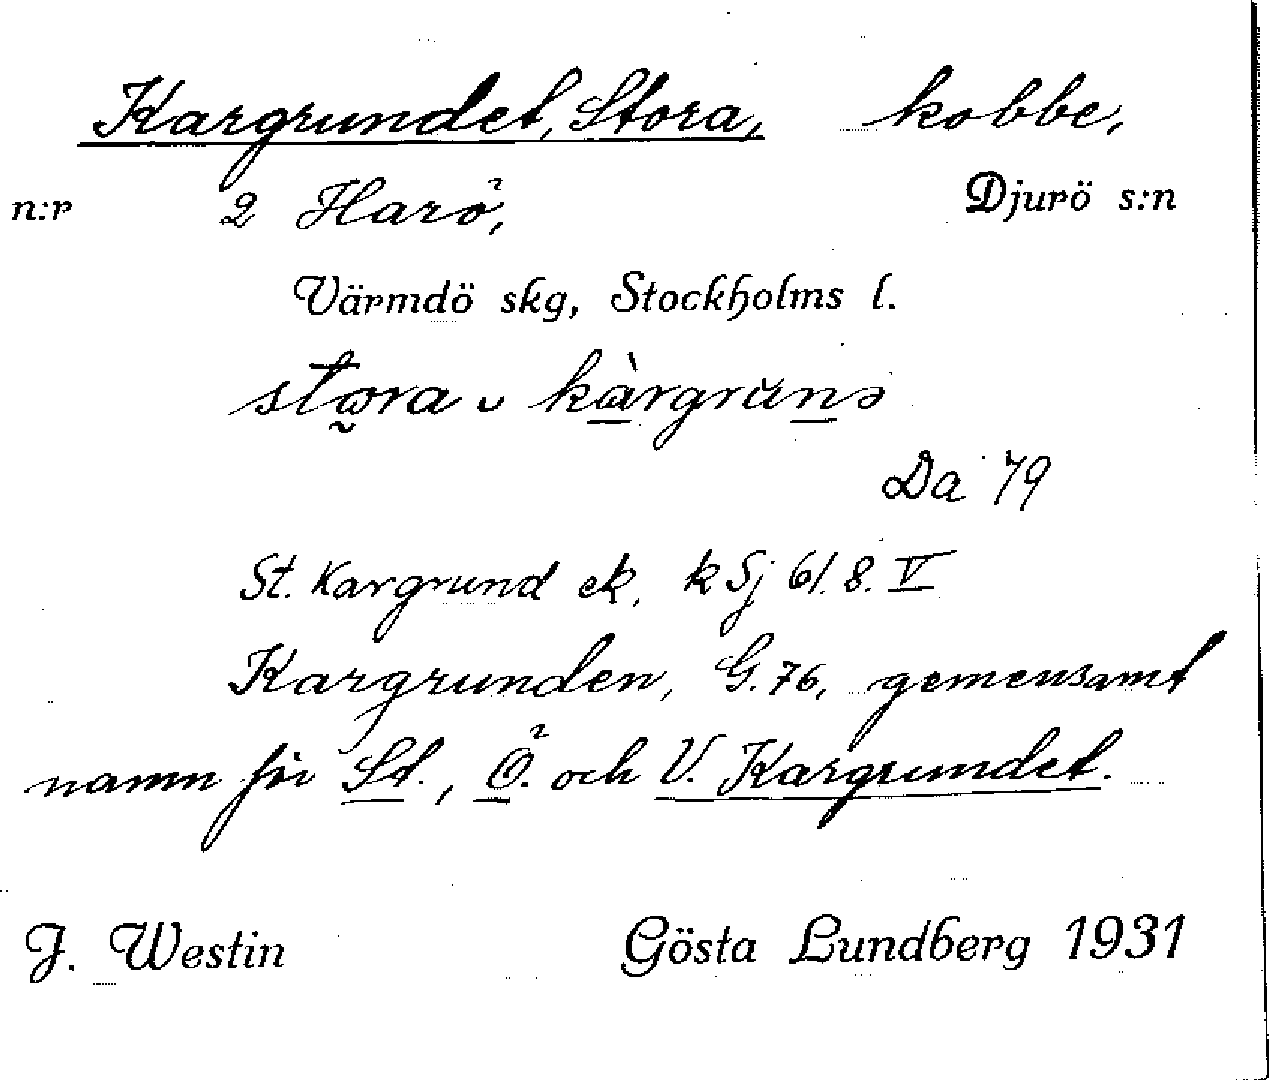 Kargrundet, Stora, kobbe,
n:r 2 Harö, Djurö s:n
Värmdö skg, Stockholms l.
kàrgrün̲ə
Da 79
St. Kargrund ek. k Sj 61. 8. V
Kargrunden, G. 76, gemensamt
namn för St., Ö. och V. Kargrundet.
J. Westin Gösta Lundberg 1931